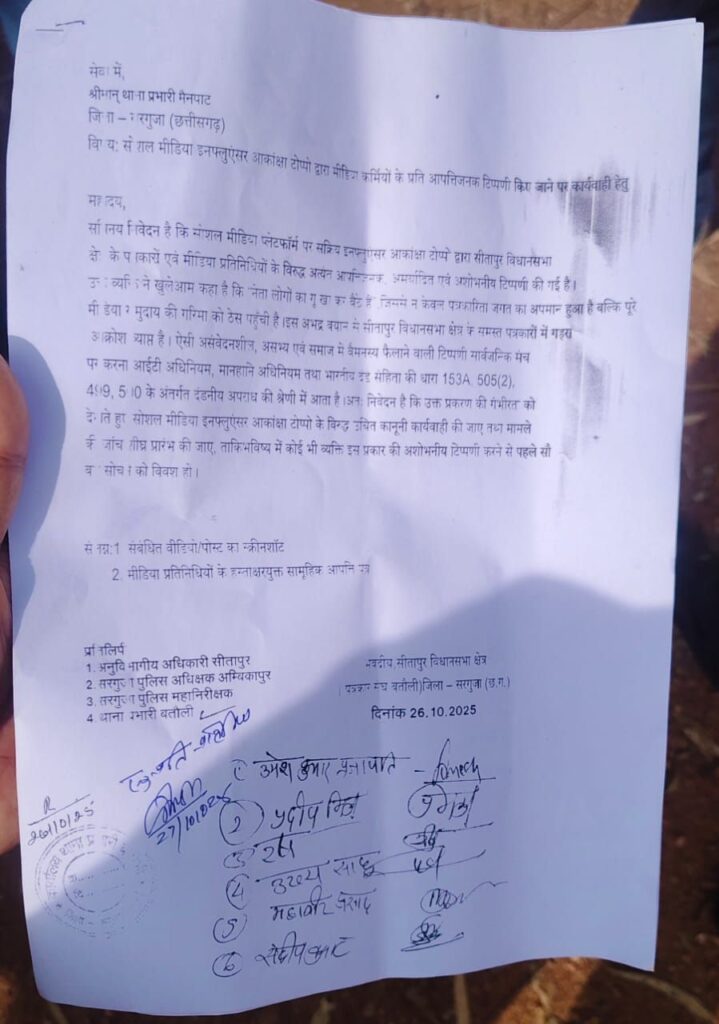 सेवा में,
श्रीमान् थाना प्रभारी मैनपाट
जिला – सरगुजा (छत्तीसगढ़)
विषय: सोशल मीडिया इनफ्लुएंसर आकांक्षा टोप्पो द्वारा मीडिया कर्मियों के प्रति आपत्तिजनक टिप्पणी किए जाने पर कार्यवाही हेतु
महोदय,
सविनय निवेदन है कि सोशल मीडिया प्लेटफॉर्म पर सक्रिय इनफ्लुएंसर आकांक्षा टोप्पो द्वारा सीतापुर विधानसभा
क्षेत्र के पत्रकारों एवं मीडिया प्रतिनिधियों के विरुद्ध अत्यंत आपत्तिजनक, अमर्यादित एवं अशोभनीय टिप्पणी की गई है।
उक्त व्यक्ति ने खुलेआम कहा है कि "नेता लोगों का गू खा कर बैठे हैं", जिससे न केवल पत्रकारिता जगत का अपमान हुआ है बल्कि पूरे
मीडिया समुदाय की गरिमा को ठेस पहुंची है।इस अभद्र बयान से सीतापुर विधानसभा क्षेत्र के समस्त पत्रकारों में गहरा
आक्रोश व्याप्त है। ऐसी असंवेदनशील, असभ्य एवं समाज में वैमनस्य फैलाने वाली टिप्पणी सार्वजनिक मंच
पर करना आईटी अधिनियम, मानहानि अधिनियम तथा भारतीय दंड संहिता की धारा 153A, 505(2),
499, 500 के अंतर्गत दंडनीय अपराध की श्रेणी में आता है।अतः निवेदन है कि उक्त प्रकरण की गंभीरता को
देखते हुए सोशल मीडिया इनफ्लुएंसर आकांक्षा टोप्पो के विरुद्ध उचित कानूनी कार्यवाही की जाए तथा मामले
की जांच शीघ्र प्रारंभ की जाए, ताकिभविष्य में कोई भी व्यक्ति इस प्रकार की अशोभनीय टिप्पणी करने से पहले सौ
बार सोचने को विवश हो।
संलग्न:1 संबंधित वीडियो/पोस्ट का स्क्रीनशॉट
2. मीडिया प्रतिनिधियों के हस्ताक्षरयुक्त सामूहिक आपत्ति पत्र
प्रतिलिपि
1. अनुविभागीय अधिकारी सीतापुर
2. सरगुजा पुलिस अधिक्षक अम्बिकापुर
3. सरगुजा पुलिस महानिरीक्षक
4. थाना प्रभारी बतौली
भवदीय सीतापुर विधानसभा क्षेत्र
पत्रकार संघ बतौली)जिला – सरगुजा (छ.ग.)
दिनांक 26.10.2025
27/10/025
① उमेश कुमार प्रजापति - Umesh
② प्रदीप मिश्रा
③
④ उदय साहू
⑤ महावीर प्रसाद
⑥ संदीप कुमार